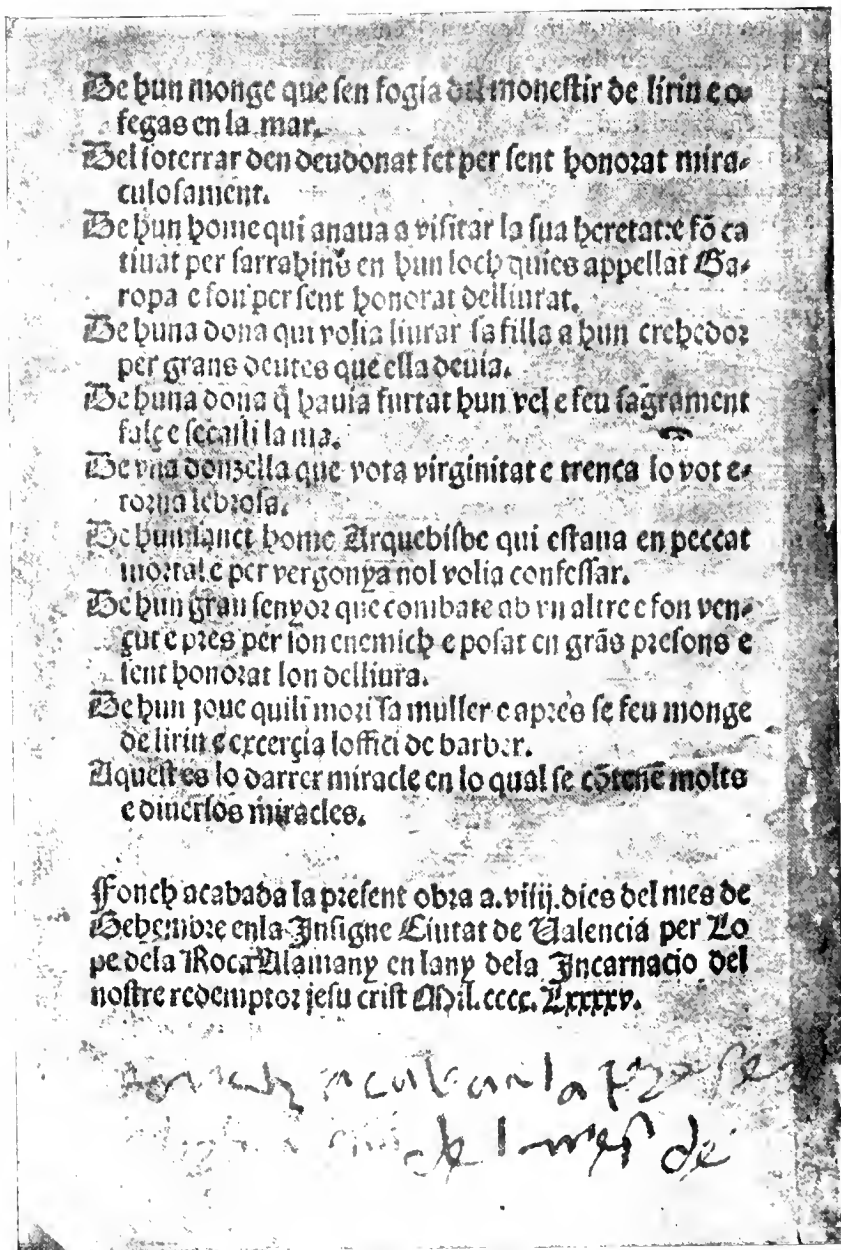 De hun monge que sen fogia del monestir de lirin e o-
fegas en la mar.
Del soterrar den deudonat fet per sent honorat mira-
culosament.
De hun home qui anaua a visitar la sua heretat: e fō ca
tiuat per sarrahins en hun loch qui es appellat Ga-
ropa e fon per sent honorat delliurat.
De huna dona qui volia liurar sa filla a hun crehedor
per grans deutes que ella deuia.
De huna dona q̄ hauia furtat hun vel e feu sagrament
fals e secaili la ma.
De vna donzella que vota virginitat e trenca lo vot e-
torna lebrosa.
De hun sanct home Arquebisbe qui estaua en peccat
mortal e per vergonya nol volia confessar.
De hun gran senyor que combate ab vn altre e fon ven-
çut e pres per son enemich e posat en grās presons e
sent honorat lon delliura.
De hun joue quili mori sa muller e apres se feu monge
de lirin e exercia loffici de barber.
Aquest es lo darrer miracle en lo qual se cōtenē molts
e diuersos miracles.
Fonch acabada la present obra a.viiij.dies del mes de
Dehembre enla Insigne Ciutat de Ualencia per Lo
pe dela Roca Alamany en lany dela Incarnacio del
nostre redemptor jesu crist Mil.cccc.Lxxxxv.
la prese
del mes de